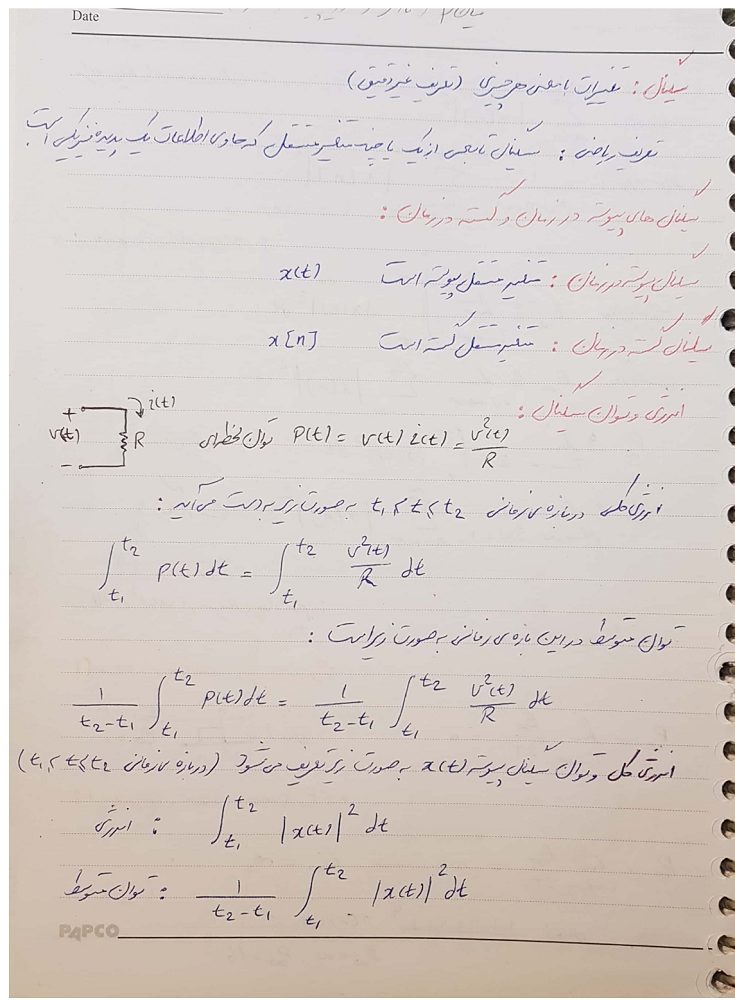 Date
سیگنال : تغییرات بامعنی هر چیزی (تعریف غیر دقیق)
تعریف ریاضی : سیگنال تابعی از یک یا چند متغیر مستقل که حاوی اطلاعات یک پدیده فیزیکی است.
سیگنال های پیوسته در زمان و گسسته در زمان :
سیگنال پیوسته در زمان : متغیر مستقل پیوسته است x(t)
سیگنال گسسته در زمان : متغیر مستقل گسسته است x[n]
انرژی و توان سیگنال :
+ v(t) - i(t) R
توان لحظه‌ای P(t) = v(t) i(t) = v²(t)/R
انرژی کلی در بازه‌ی زمانی t₁ ≤ t ≤ t₂ به صورت زیر به دست می‌آید :
∫_{t₁}^{t₂} P(t) dt = ∫_{t₁}^{t₂} v²(t)/R dt
توان متوسط در این بازه‌ی زمانی به صورت زیر است :
1/(t₂-t₁) ∫_{t₁}^{t₂} P(t) dt = 1/(t₂-t₁) ∫_{t₁}^{t₂} v²(t)/R dt
انرژی کل و توان سیگنال پیوسته x(t) به صورت زیر تعریف می شود (در بازه‌ی زمانی t₁ ≤ t ≤ t₂)
انرژی : ∫_{t₁}^{t₂} |x(t)|² dt
توان متوسط : 1/(t₂-t₁) ∫_{t₁}^{t₂} |x(t)|² dt
PAPCO